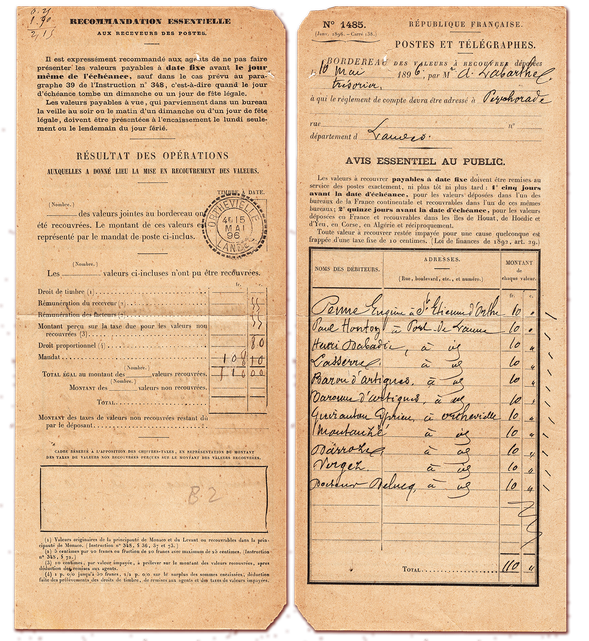 0.21
1.90
2,15
RECOMMANDATION ESSENTIELLE
AUX RECEVEURS DES POSTES.
Il est expressément recommandé aux agents de ne pas faire
présenter les valeurs payables à date fixe avant le jour
même de l'échéance, sauf dans le cas prévu au para-
graphe 39 de l'Instruction n° 348, c'est-à-dire quand le jour
d'échéance tombe un dimanche ou un jour de fête légale.
Les valeurs payables à vue, qui parviennent dans un bureau
la veille au soir ou le matin d'un dimanche ou d'un jour de fête
légale, doivent être présentées à l'encaissement le lundi seule-
ment ou le lendemain du jour férié.
RÉSULTAT DES OPÉRATIONS
AUXQUELLES A DONNÉ LIEU LA MISE EN RECOUVREMENT DES VALEURS.
TIMBRE À DATE.
ORTHEVIELLE
15
MAI
96
LANDES
(Nombre.)
des valeurs jointes au bordereau ont
été recouvrées. Le montant de ces valeurs est
représenté par le mandat de poste ci-inclus.
(Nombre.)
Les valeurs ci-incluses n'ont pu être recouvrées.
fr.
Droit de timbre (1)
Rémunération du receveur (2) 55
Rémunération des facteurs (2) 55
Montant perçu sur la taxe due pour les valeurs non
recouvrées (3)
Droit proportionnel (4) 80
Mandat 108 10
(Nombre.)
TOTAL égal au montant des valeurs recouvrées. 110 00
(Nombre.)
MONTANT des valeurs non recouvrées.
TOTAL
MONTANT des taxes de valeurs non recouvrées restant dû
par le déposant.
CADRE RÉSERVÉ À L'APPOSITION DES CHIFFRES-TAXES, EN REPRÉSENTATION DU MONTANT
DES TAXES DE VALEURS NON RECOUVRÉES PERÇUES SUR LE MONTANT DES VALEURS RECOUVRÉES.
B-2
(1) Valeurs originaires de la principauté de Monaco et du Levant ou recouvrables dans la prin-
cipauté de Monaco. (Instruction n° 348, § 36, 37 et 73.)
(2) 5 centimes par 20 francs ou fraction de 20 francs avec maximum de 25 centimes. (Instruction
n° 348, § 70.)
(3) 10 centimes, par valeur impayée, à prélever sur le montant des valeurs recouvrées, après
déduction des remises aux agents.
(4) 1 p. 0/0 jusqu'à 50 francs, 1/2 p. 0/0 sur le surplus des sommes encaissées, déduction
faite des prélèvements des droits de timbre, de remises aux agents et des taxes de valeurs impayées.
N° 1485.
RÉPUBLIQUE FRANÇAISE.
POSTES ET TÉLÉGRAPHES.
BORDEREAU DES VALEURS À RECOUVRER déposées
10 Mai 1896, par M r d. Labarthe
trésorier
à qui le règlement de compte devra être adressé à Peyrehorade
rue n°
département d Landes.
AVIS ESSENTIEL AU PUBLIC.
Les valeurs à recouvrer payables à date fixe doivent être remises au
service des postes exactement, ni plus tôt ni plus tard : 1° cinq jours
avant la date d'échéance, pour les valeurs déposées dans un des bureaux
de la France continentale et recouvrables dans l'un de ces mêmes
bureaux; 2° quinze jours avant la date d'échéance, pour les valeurs
déposées en France et recouvrables dans les îles de Houat, de Hoëdic et
d'Yeu, en Corse, en Algérie et réciproquement.
Toute valeur à recouvrer restée impayée pour une cause quelconque est
frappée d'une taxe fixe de 10 centimes. (Loi de finances de 1892, art. 29.)
NOMS DES DÉBITEURS.
ADRESSES.
(Rue, boulevard, etc., et numéro.)
MONTANT
de
chaque valeur.
fr. c.
Perne Eugène à St Etienne d'Orthe 10 "
Paul Hontoy à Port-de-Lanne 10 "
Henri Dabadie, à id 10 "
Lasserre à id 10 "
Baron d'artigues, à id 10 "
Baronne d'artigues, à id 10 "
à Orthevielle 10 "
à id 10 "
à id 10 "
Vergez. à id 10 "
Docteur Delucq, à id 10 "
TOTAL 110 "